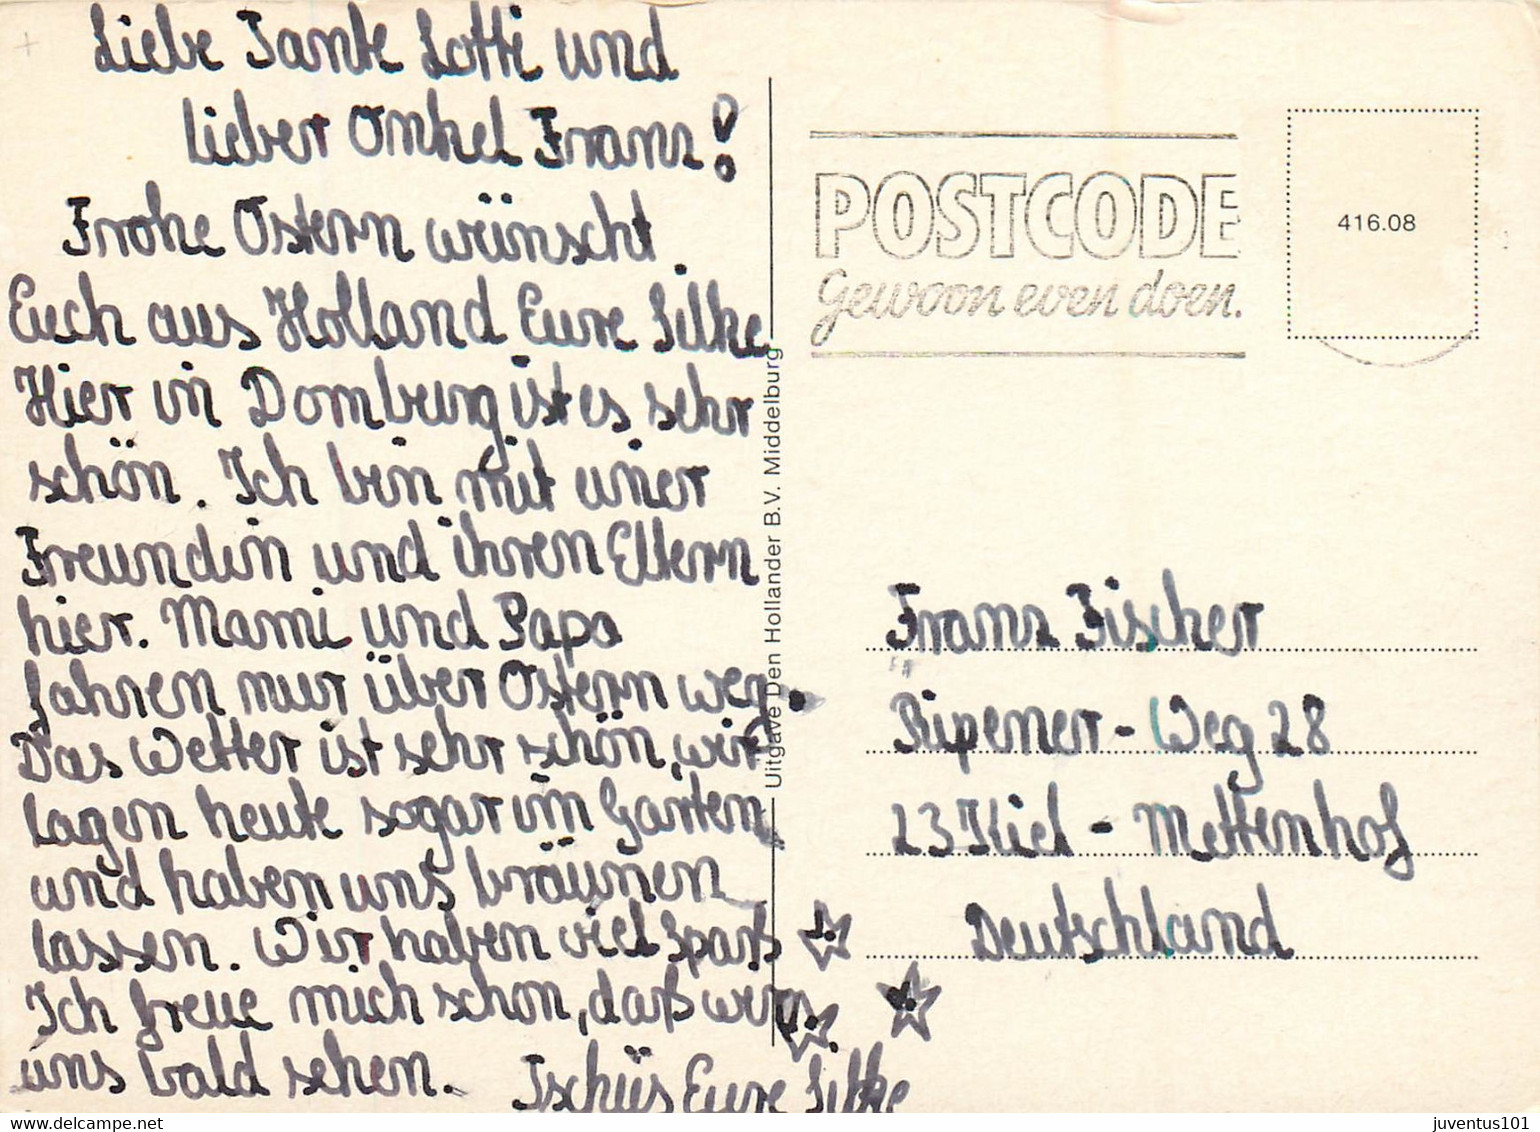 Liebe Tante Lotti und
lieber Onkel Franz!
Frohe Ostern wünscht
Euch aus Holland Eure Silke
Hier in Domburg ist es sehr
schön. Ich bin mit einer
Freundin und ihren Eltern
hier. Mami und Papa
fahren nur über Ostern weg.
Das Wetter ist sehr schön, wir
lagen heute sogar im Garten
und haben uns bräunen
lassen. Wir haben viel Spaß
Ich freue mich schon, daß wir
uns bald sehen.
Tschüs Eure Silke
Uitgave Den Hollander B.V. Middelburg
POSTCODE
Gewoon even doen.
416.08
Franz Fischer
Ripener-Weg 28
23 Kiel - Mettenhof
Deutschland
www.delcampe.net
juventus101